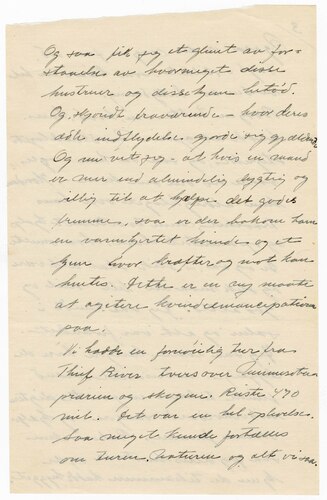 Og saa fik jeg et glimt av for-
staaelse av hvormeget disse
hustruer og disse hjem betød.
Og skjøndt fraværende - hvor deres
ædle indflydelse gjorde sig gjældende.
Og nu vet jeg - at hvis en mand
er mer end almindelig dygtig og
villig til at hjælpe det godes
fremme, saa er der bakom ham
en varmhjertet kvinde og et
hjem hvor kræfter og mot kan
hentes. Dette er en ny maate
at agitere kvindeemancipation
paa.
Vi hadde en fornøielig tur fra
Thief River tvers over Minnesotas
prærien og skogene. Reiste 470
mil. Det var en hel oplevelse.
Saa meget kunde fortælles
om turen, naturen og alt vi saa.